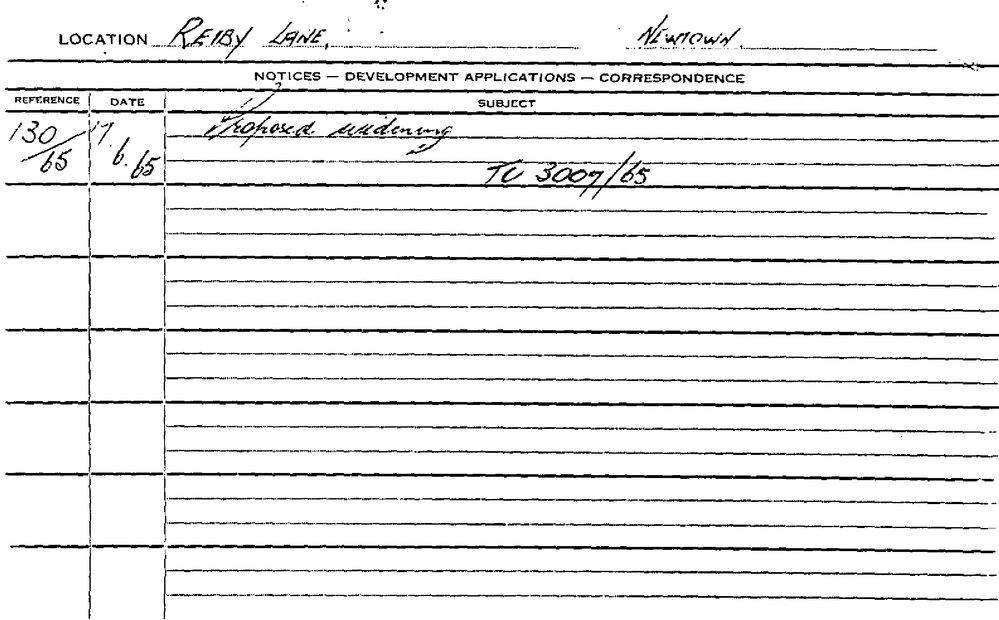 LOCATION REIBY LANE, NEWTOWN.
NOTICES — DEVELOPMENT APPLICATIONS — CORRESPONDENCE
REFERENCE DATE SUBJECT
130/65 17.6.65 Proposed widening
TC 3007/65